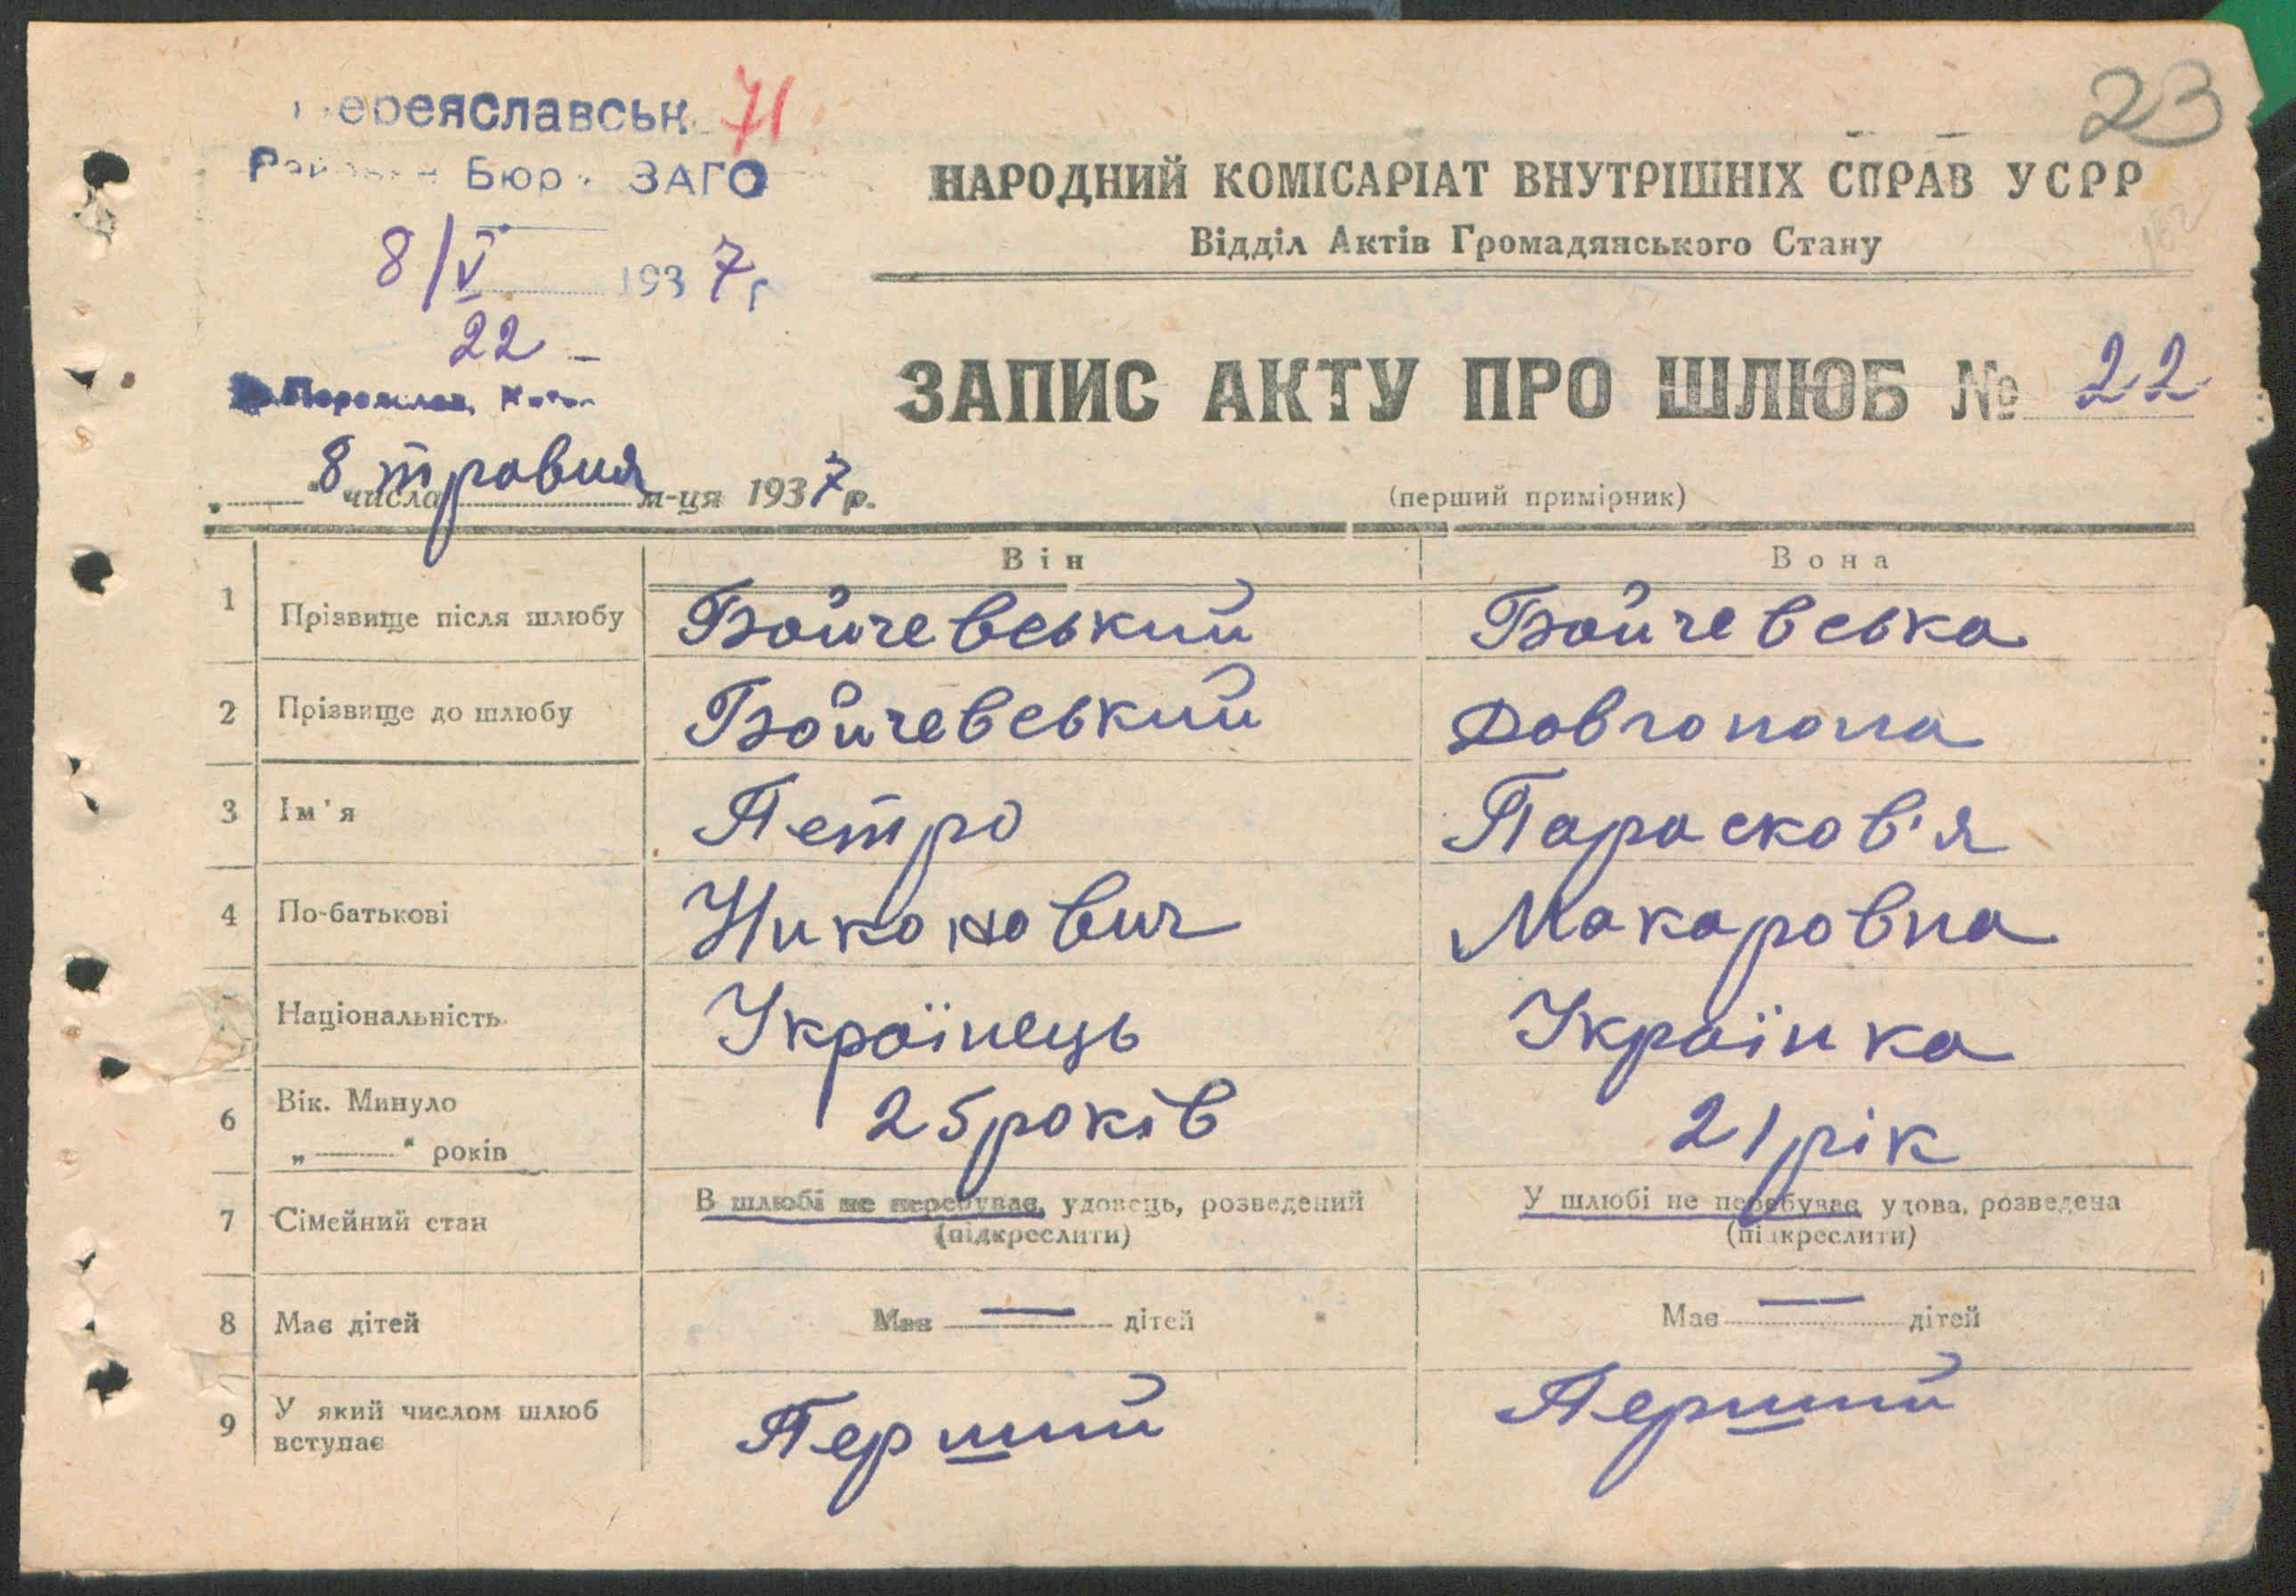 Переяславськ 71
Бюро ЗАГС
23
8/V 1937 г
22 –
НАРОДНИЙ КОМІСАРІАТ ВНУТРІШНІХ СПРАВ УСРР
Відділ Актів Громадянського Стану
162
ЗАПИС АКТУ ПРО ШЛЮБ № 22
„ 8 " числа травня м-ця 1937 р.
(перший примірник)
Він Вона
1 Прізвище після шлюбу Бойчевський Бойчевська
2 Прізвище до шлюбу Бойчевський Довгопола
3 Ім'я Петро Парасков'я
4 По-батькові Никонович Макаровна
Національність Українець Українка
6 Вік. Минуло
„ " років 25 років 21 рік
7 Сімейний стан В шлюбі не перебуває, удовець, розведений У шлюбі не перебуває удова, розведена
(підкреслити) (підкреслити)
8 Має дітей Має — дітей Має — дітей
9 У який числом шлюб
вступає Перший Перший